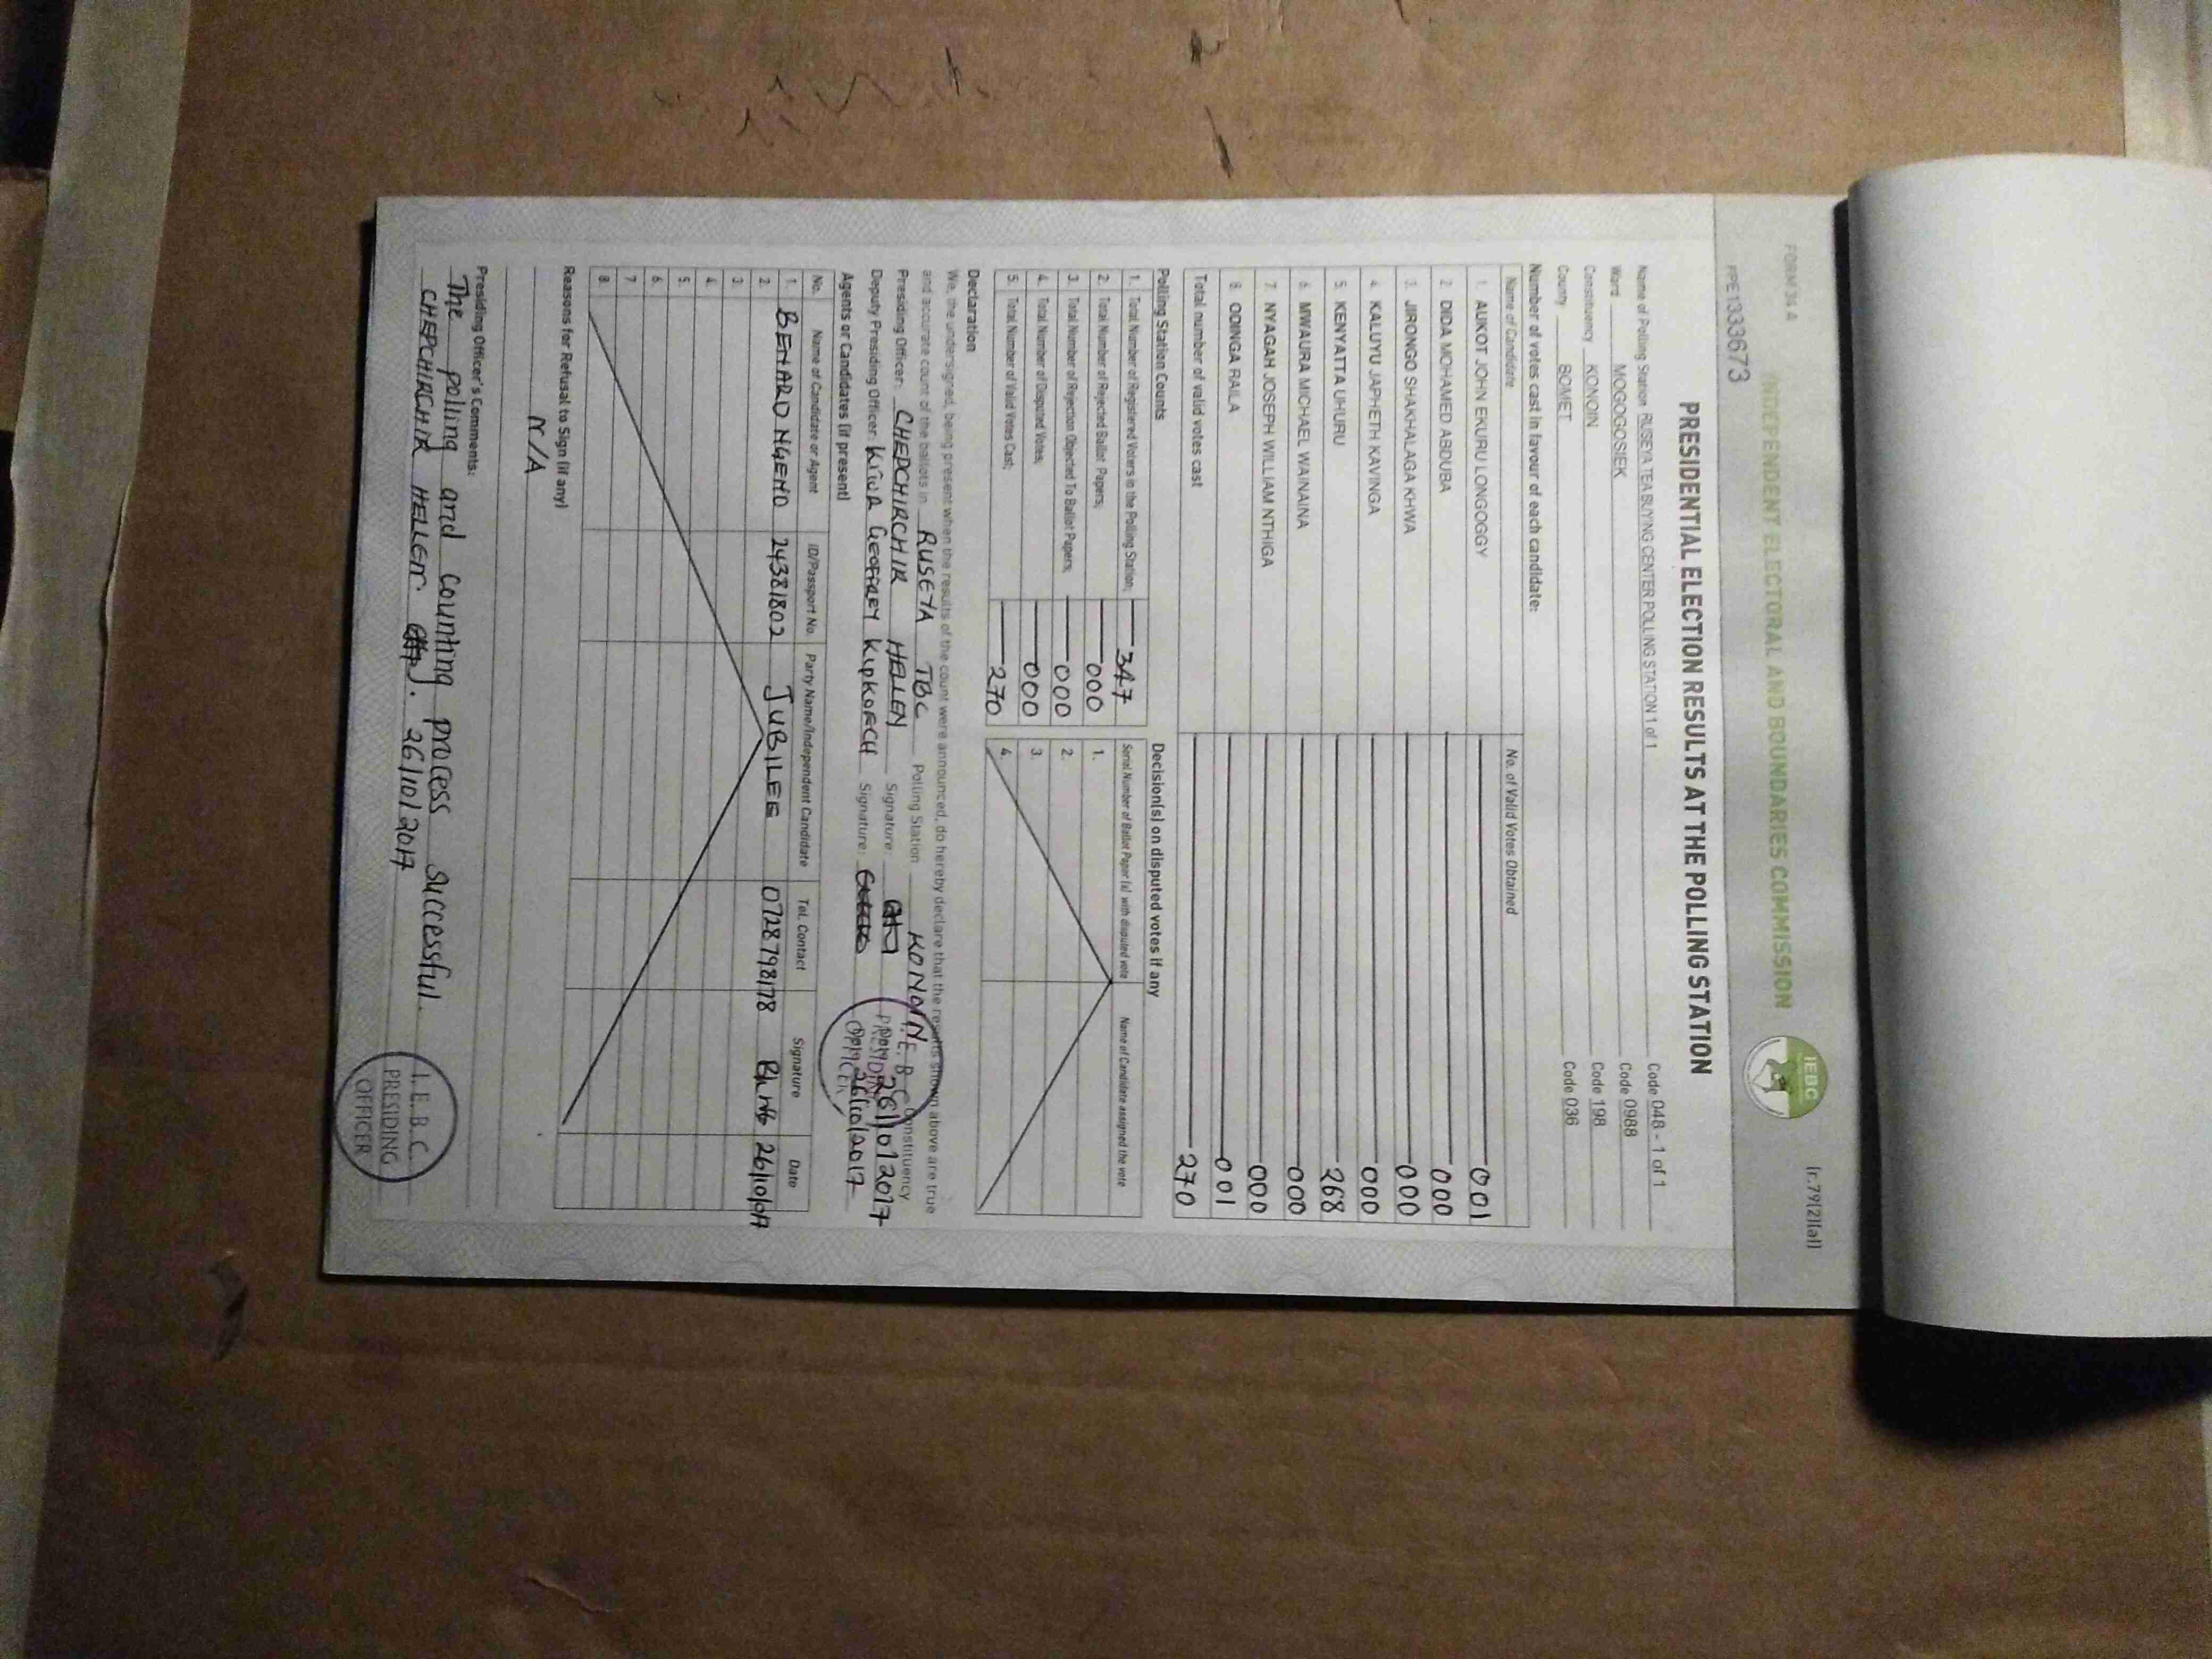 FORM 34 A
(r.79(2)(a))
INDEPENDENT ELECTORAL AND BOUNDARIES COMMISSION
IEBC
PPE1333673
PRESIDENTIAL ELECTION RESULTS AT THE POLLING STATION
Name of Polling Station RUSEYA TEA BUYING CENTER POLLING STATION 1 of 1 Code 048 - 1 of 1
Ward MOGOGOSIEK Code 0988
Constituency KONOIN Code 198
County BOMET Code 036
Number of votes cast in favour of each candidate:
Name of Candidate No. of Valid Votes Obtained
1. AUKOT JOHN EKURU LONGOGGY 001
2. DIDA MOHAMED ABDUBA 000
3. JIRONGO SHAKHALAGA KHWA 000
4. KALUYU JAPHETH KAVINGA 000
5. KENYATTA UHURU 268
6. MWAURA MICHAEL WAINAINA 000
7. NYAGAH JOSEPH WILLIAM NTHIGA 000
8. ODINGA RAILA 001
Total number of valid votes cast 270
Polling Station Counts
1. Total Number of Registered Voters in the Polling Station; 347
2. Total Number of Rejected Ballot Papers; 000
3. Total Number of Rejection Objected To Ballot Papers; 000
4. Total Number of Disputed Votes; 000
5. Total Number of Valid Votes Cast; 270
Decision(s) on disputed votes if any
Serial Number of Ballot Paper (s) with disputed vote Name of Candidate assigned the vote
1.
2.
3.
4.
Declaration
We, the undersigned, being present when the results of the count were announced, do hereby declare that the results shown above are true
and accurate count of the ballots in RUSEYA TBC Polling Station KONOIN Constituency
Presiding Officer: CHEPCHIRCHIR HELLEN Signature 26/10/2017
Deputy Presiding Officer: KIRUI GEOFFREY KIPKOECH Signature 26/10/2017
I.E.B.C
PRESIDING
OFFICER
Agents or Candidates (if present)
No. Name of Candidate or Agent ID/Passport No. Party Name/Independent Candidate Tel. Contact Signature Date
1. BENARD NGENO 24381802 JUBILEE 0728798178 26/10/017
2.
3.
4.
5.
6.
7
8
Reasons for Refusal to Sign (if any)
N/A
Presiding Officer's Comments:
The polling and counting process successful.
CHEPCHIRCHIR HELLEN. 26/10/2017
I.E.B.C.
PRESIDING
OFFICER